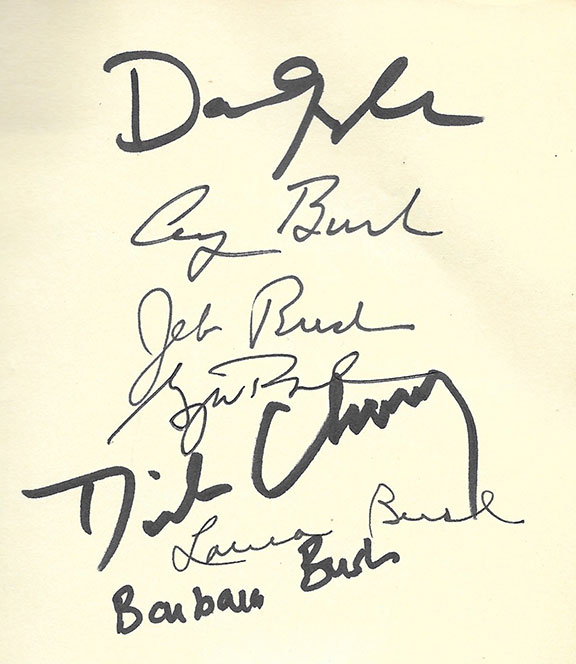 Dan Quayle
Bush
Jeb Bush
W Bush
Dick Cheney
Laura Bush
Barbara Bush